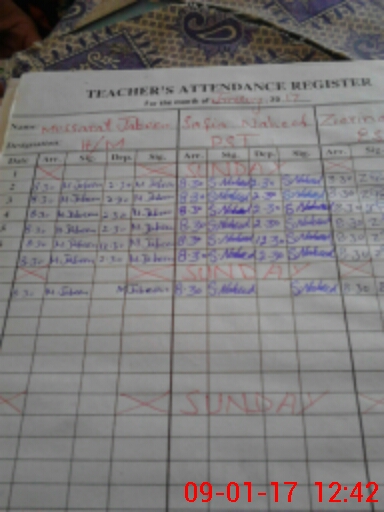 TEACHER'S ATTENDANCE REGISTER
For the month of January 2017
Name Mussarat Jabeen Safia Naheed
Designation H/M PST
Date Arr. Sig. Dep. Sig. Arr. Sig. Dep. Sig. Arr. Sig.
1 SUNDAY
2 8.30 M.Jabeen 2.30 M.Jabeen 8.30 S.Naheed 2.30 S.Naheed 8.30
3 8.30 M.Jabeen 2.30 M.Jabeen 8.30 S.Naheed 2.30 S.Naheed 8.30
4 8.30 M.Jabeen 2.30 M.Jabeen 8.30 S.Naheed 2.30 S.Naheed 8.30
8.30 M.Jabeen 2.30 M.Jabeen 8.30 S.Naheed 2.30 S.Naheed 8.30
8.30 M.Jabeen 12.30 M.Jabeen 8.30 S.Naheed 12.30 S.Naheed 8.30
8.30 M.Jabeen 2.30 M.Jabeen 8.30 S.Naheed 2.30 S.Naheed 8.30
SUNDAY
8.30 M.Jabeen M.Jabeen 8.30 S.Naheed S.Naheed 8.30
SUNDAY
09-01-17 12:42